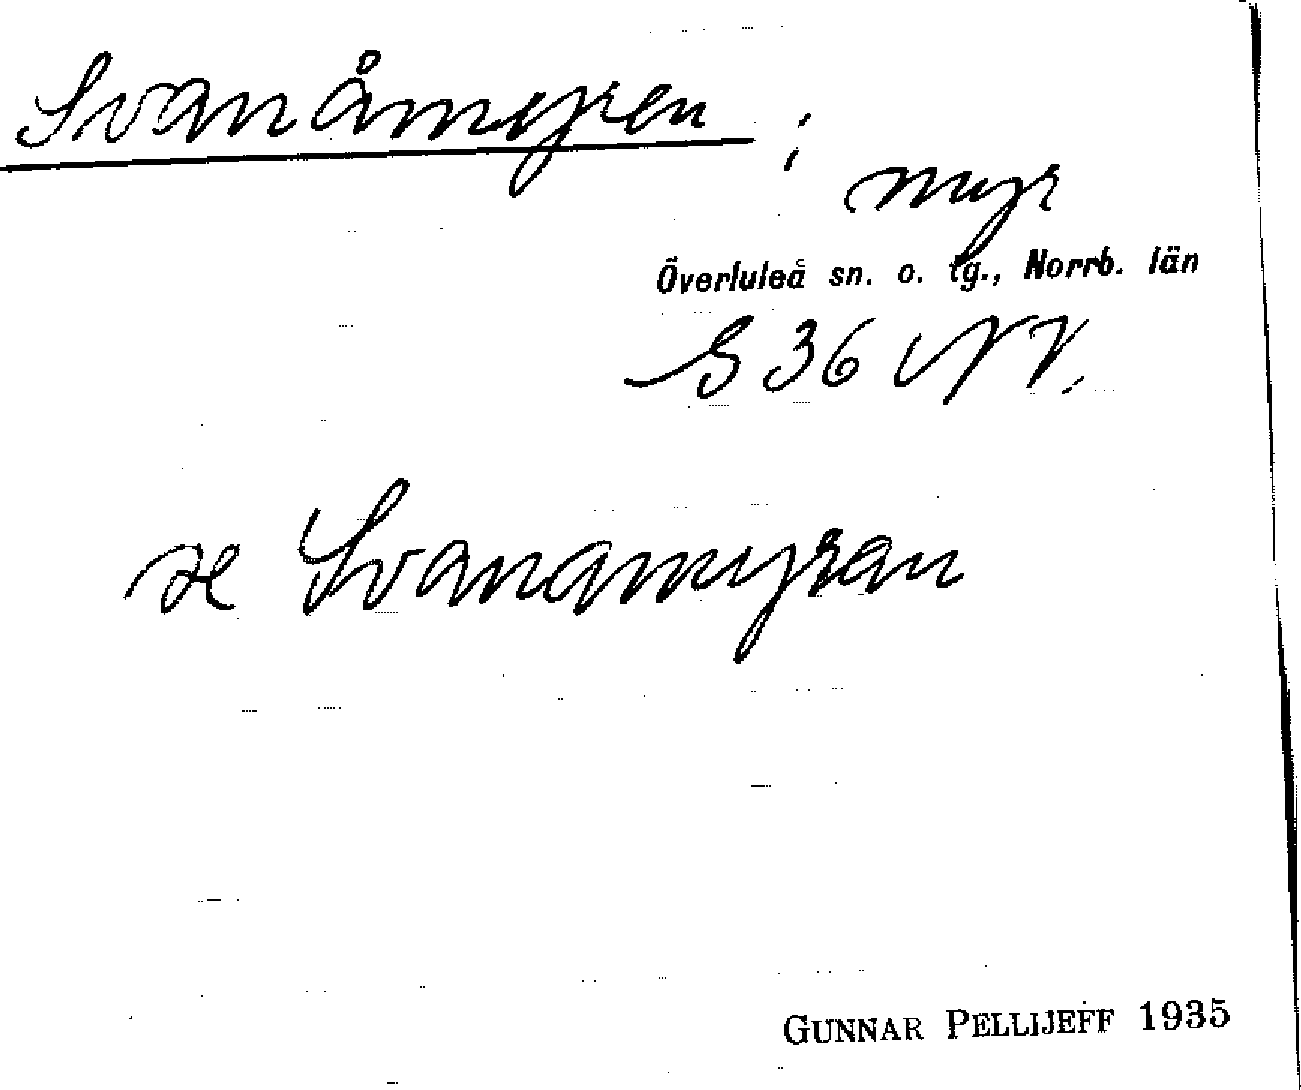 Svanåmyren ;
myr
Överluleå sn. o. tg., Norrb. län
S 36 NV.
se Svanamyran
GUNNAR PELLIJEFF 1935